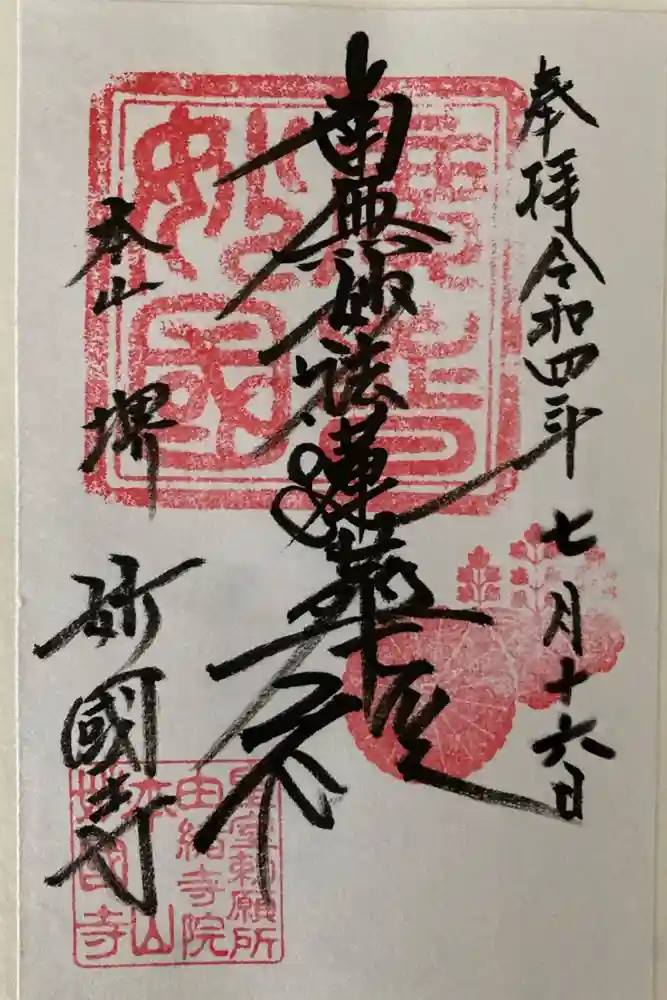 奉拝 令和四年 七月十六日
南無妙法蓮華経
本山 堺 妙國寺
皇室勅願所
由緒寺院
本山
妙國寺